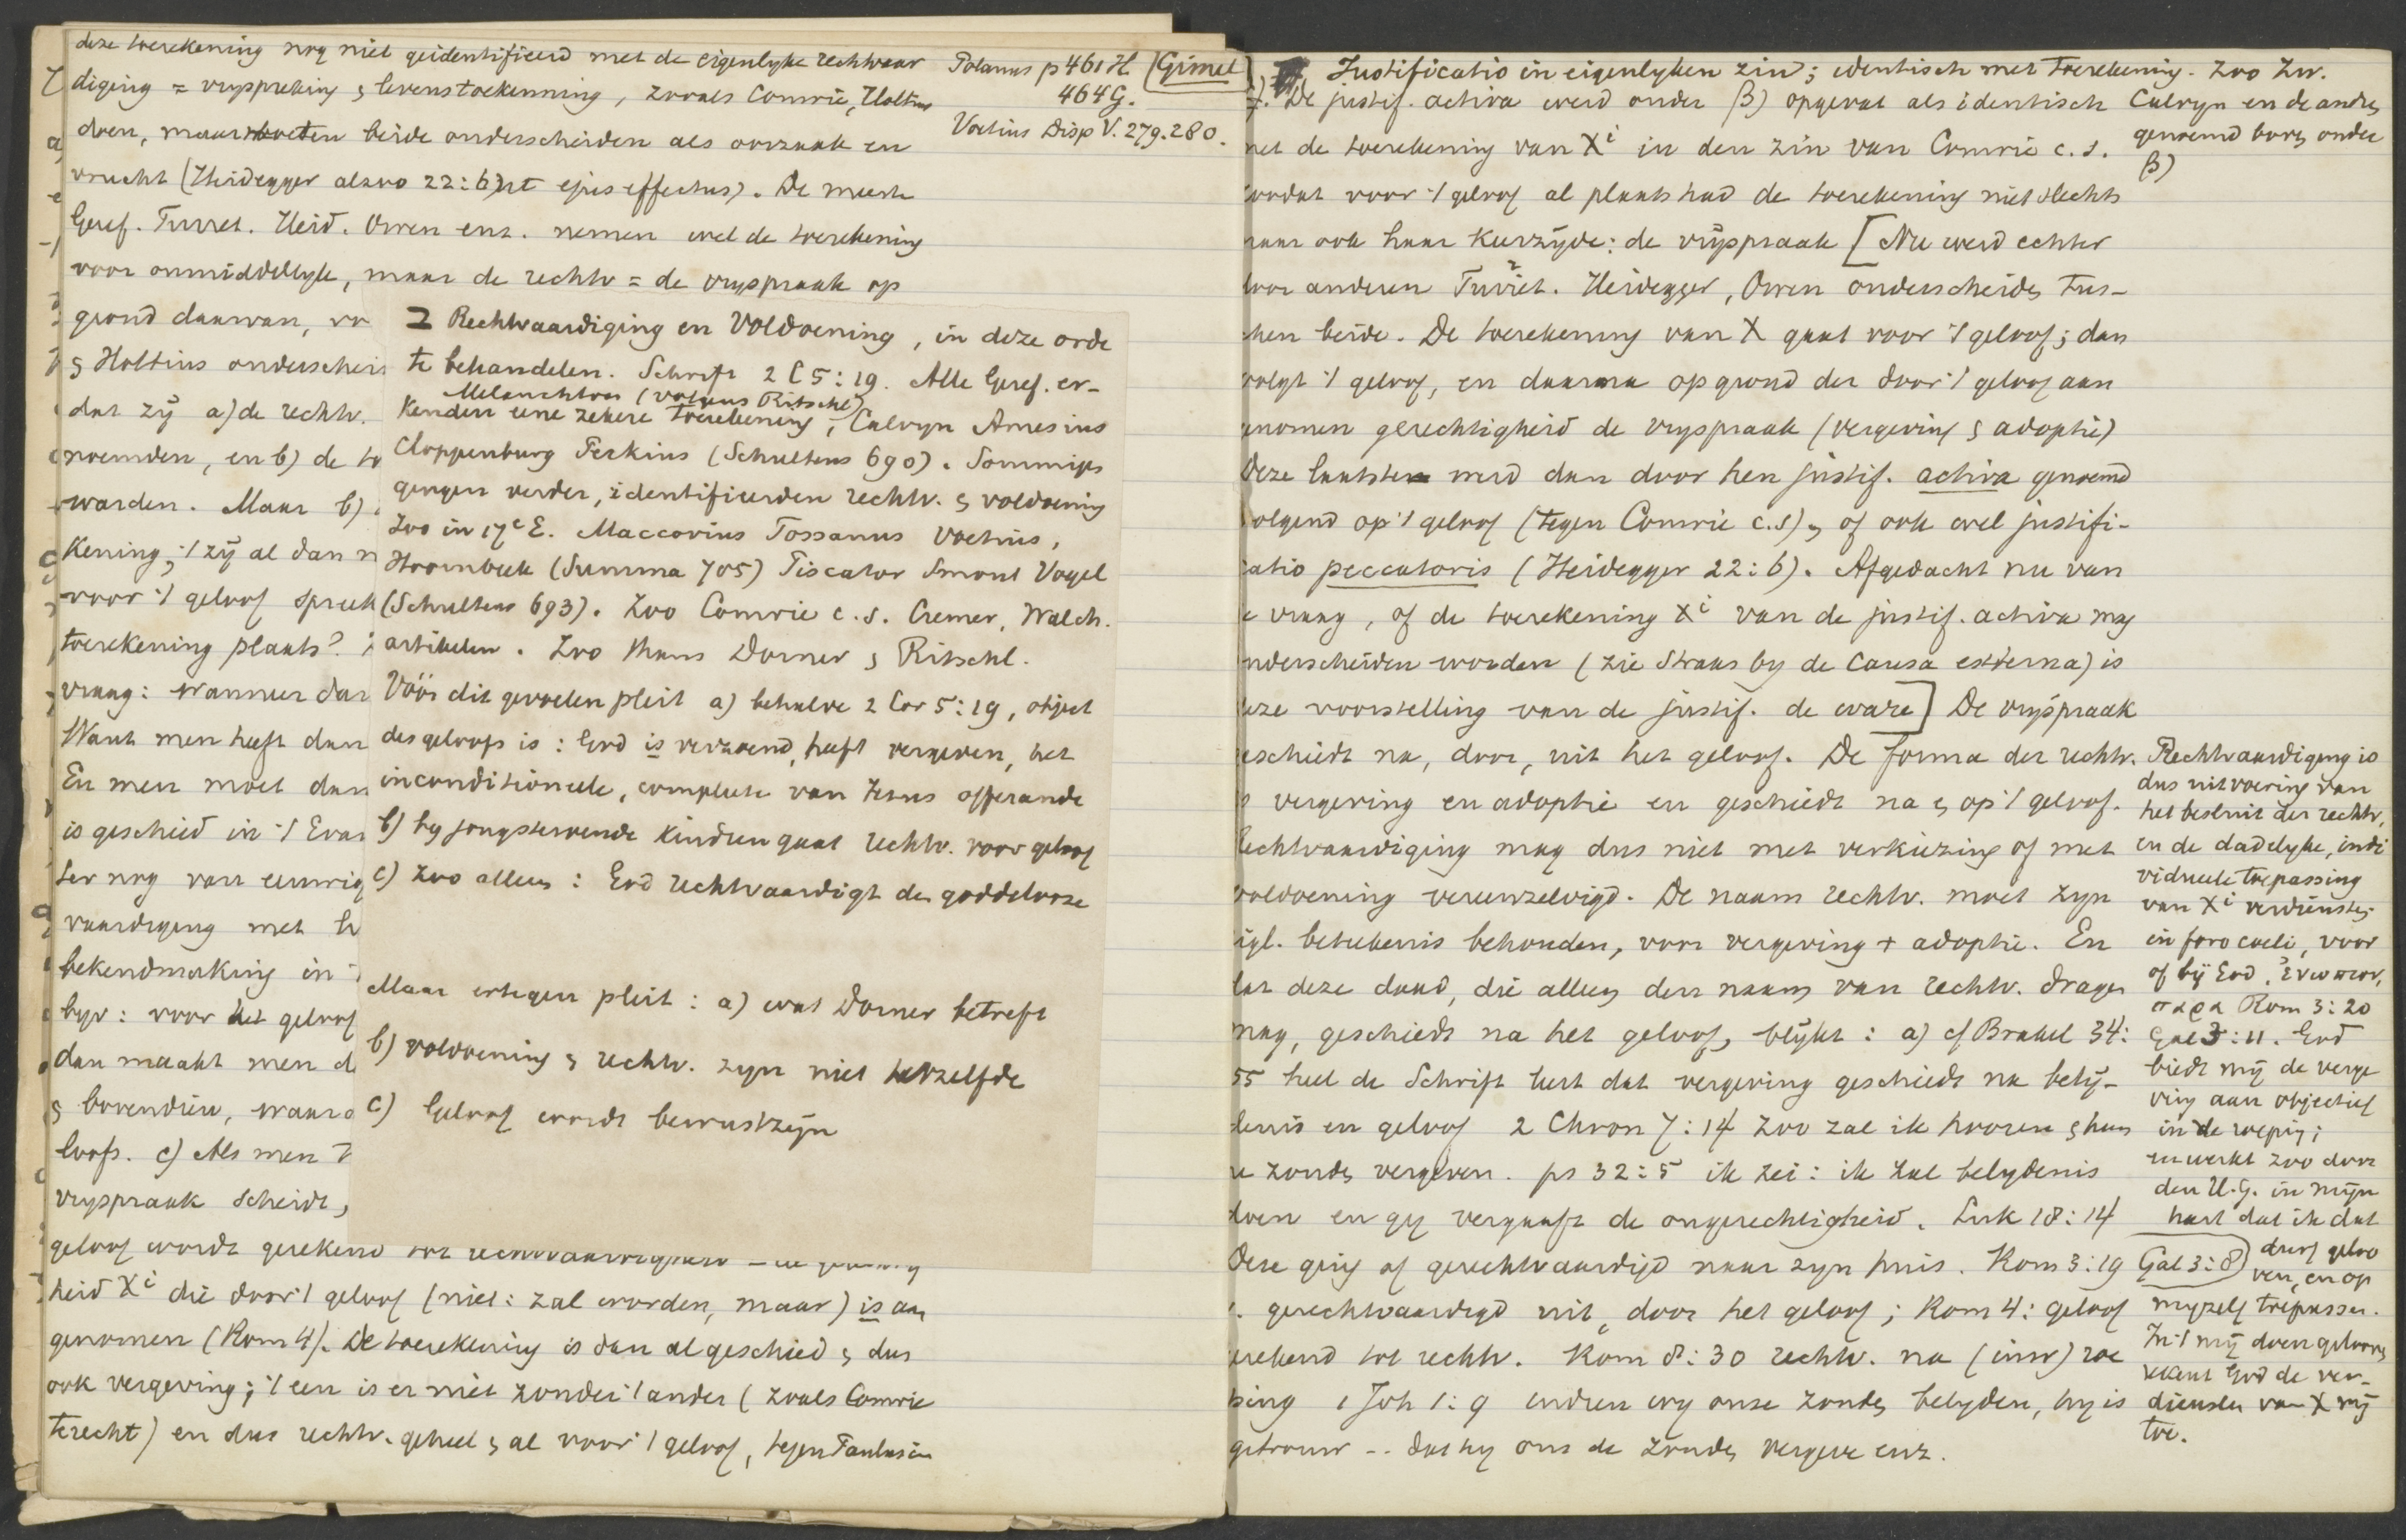 deze toerekening nog niet geidentificeerd met de eigenlyke rechtvaar
diging = vryspreking & levenstoekenning, zooals Comrie, Holtius
doen, maar moeten beide onderscheiden als oorzaak en
vrucht (Heidegger alzoo 22:6) ut ejus effectus). De meeste
Geref. Turret. Heid. Owen enz. nemen wel de toerekening
voor onmiddellyk, maar de rechtv = de vryspraak op
grond daarvan, vo
& Holtius onderschei
dat zÿ a) de rechtv.
noemden, en b) de to
warden. Maar b)
kening; 't zÿ al dan n
voor 't geloof spreek
toerekening plaats?
vraag: wanneer dar
Want men heeft dan
En men moet dan
is geschied in 't Evan
ter nog van eeuwig
vaardiging met h
bekendmaking in
byv: voor het geloof
dan maakt men d
& bovendien, waar
loofs. c) Als men
vryspraak scheidt,
geloof wordt gerekend tot rechtvaardigheid
heid Xi die door 't geloof (niet: zal worden, maar) is aan
genomen (Rom 4). De toerekening is dan al geschied & dus
ook vergeving; 't een is er niet zonder 't ander (zoals Comrie
terecht) en dus rechtv. geheel & al voor 't geloof, tegen Paulus in
Polanus p 461 H.
464 G.
Voetius Disp V. 279. 280.
[Gimel]
ℶ Rechtvaardiging en Voldoening, in deze orde
te behandelen. Schrift 2 C 5:19. Alle Geref. er-
Melanchton (volgens Ritschl)
kenden eene zekere toerekening, Calvyn Amesius
Cloppenburg Perkins (Schultens 690). Sommigen
gingen verder, identifieerden rechtv. & voldoening
Zoo in 17e E. Maccovius Tossanus Voetius,
Hoornbeek (Summa 705) Piscator Smout Vogel
(Schultens 693). Zoo Comrie c.s. Cremer, Walch.
artikelen. Zoo thans Dorner & Ritschl.
Vóór dit gevoelen pleit a) behalve 2 Cor 5:19, object
des geloofs is: God is verzoend, heeft vergeven, het
inconditioneele, complete van Jezus offerande
b) by jongstervende kindren gaat rechtv. voor geloof
c) Zoo alleen: God rechtvaardigt de goddelooze
Maar ertegen pleit: a) wat Dorner betreft
b) voldoening & rechtv. zyn niet hetzelfde
c) Geloof wordt bewustzÿn
Justificatio in eigenlyken zin; identisch met toerekening. Zoo Zw.
De justif. activa werd onder β) opgevat als identisch
met de toerekening van Xi in den zin van Comrie c.s.
oodat voor 't geloof al plaats had de toerekening niet slechts
maar ook haar keerzÿde: de vrÿspraak [Nu werd echter
door anderen Turret. Heidegger, Owen onderscheiden tus-
chen beide. De toerekening van X gaat voor 't geloof; dan
volgt 't geloof, en daarna op grond der door 't geloof aan
genomen gerechtigheid de vryspraak (vergeving & adoptie)
Deze laatste werd dan door hen justif. activa genoemd
volgend op 't geloof (tegen Comrie c.s) & of ook wel justifi-
catio peccatoris (Heidegger 22:6). Afgedacht nu van
e vraag, of de toerekening Xi van de justif. activa mag
nderscheiden worden (zie straks by de Causa externa) is
deze voorstelling van de justif. de ware] De vryspraak
geschiedt na, door, uit het geloof. De forma der rechtv.
is vergeving en adoptie en geschiedt na & op 't geloof.
Rechtvaardiging mag dus niet met verkiezing of met
voldoening vereenzelvigd. De naam rechtv. moet zyn
eigl. beteekenis behouden, voor vergeving + adoptie. En
dat deze daad, die alleen den naam van rechtv. dragen
mag, geschiedt na het geloof, blÿkt: a) cf Brakel 34:
55 heel de Schrift leert dat vergeving geschiedt na belÿ-
denis en geloof 2 Chron 7:14 Zoo zal ik hooren & hun
ne zonden vergeven. ps 32:5 ik zei: ik zal belydenis
doen en gy vergaaft de ongerechtigheid. Luk 18:14
Deze ging af gerechtvaardigd naar zyn huis. Rom 3:19
gerechtvaardigd uit, door het geloof; Rom 4: geloof
gerekend tot rechtv. Rom 8:30 rechtv. na (inw) roe
ping 1 Joh 1:9 indien wy onze zonden belyden, hy is
getrouw -- dat hy ons de zonden vergeve enz.
Calvyn en de andere
genoemd boven onder
β)
Rechtvaardiging is
dus uitvoering van
het besluit der rechtv,
en de dadelyke, indi
vidueele toepassing
van Xi verdiensten
in foro coeli, voor
of bÿ God, ἐνωπιον,
παρα Rom 3:20
Gal 3:11. God
biedt mÿ de verge
ving aan objectief
in de roeping;
en werkt zoo door
den H.G. in mÿn
hart dat ik dat
Gal 3:8) durf geloo
ven, en op
myzelf toepassen.
In 't mÿ doen gelooven
rekent God de ver-
diensten van X mÿ
toe.